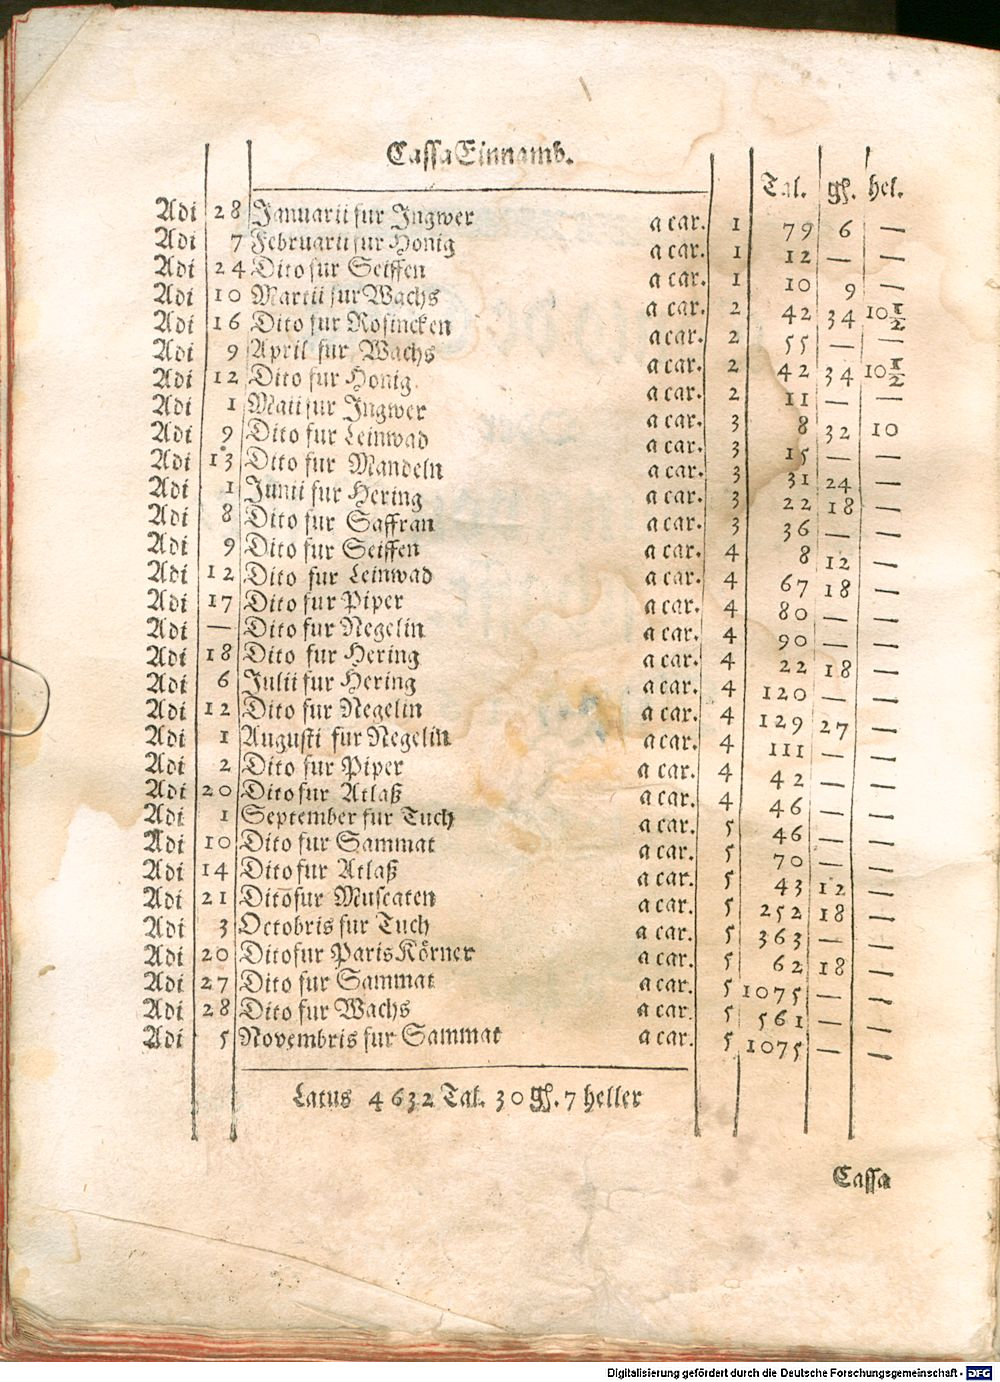 Cassa Einnamb.
Tal. gl. hel.
Adi 28 Januarii fur Ingwer a car. 1 79 6 —
Adi 7 Februarii fur Honig a car. 1 12 — —
Adi 24 Dito fur Seiffen a car. 1 10 9 —
Adi 10 Martii fur Wachs a car. 2 42 34 10 1/2
Adi 16 Dito fur Rosincken a car. 2 55 — —
Adi 9 April fur Wachs a car. 2 42 34 10 1/2
Adi 12 Dito fur Honig. a car. 2 11 — —
Adi 1 Maii fur Ingwer a car. 3 8 32 10
Adi 9 Dito fur Leinwad a car. 3 15 — —
Adi 13 Dito fur Mandeln a car. 3 31 24 —
Adi 1 Junii fur Hering a car. 3 22 18 —
Adi 8 Dito fur Saffran a car. 3 36 — —
Adi 9 Dito fur Seiffen a car. 4 8 12 —
Adi 12 Dito fur Leinwad a car. 4 67 18 —
Adi 17 Dito fur Piper a car. 4 80 — —
Adi — Dito fur Negelin a car. 4 90 — —
Adi 18 Dito fur Hering a car. 4 22 18 —
Adi 6 Julii fur Hering a car. 4 120 — —
Adi 12 Dito fur Negelin a car. 4 129 27 —
Adi 1 Augusti fur Negelin a car. 4 111 — —
Adi 2 Dito fur Piper a car. 4 42 — —
Adi 20 Dito fur Atlaß a car. 4 46 — —
Adi 1 September fur Tuch a car. 5 46 — —
Adi 10 Dito fur Sammat a car. 5 70 — —
Adi 14 Dito fur Atlaß a car. 5 43 12 —
Adi 21 Dito fur Muscaten a car. 5 252 18 —
Adi 3 Octobris fur Tuch a car. 5 363 — —
Adi 20 Dito fur Paris Körner a car. 5 62 18 —
Adi 27 Dito fur Sammat a car. 5 1075 — —
Adi 28 Dito fur Wachs a car. 5 561 — —
Adi 5 Novembris fur Sammat a car. 5 1075 — —
Latus 4632 Tal. 30 gl. 7 heller
Cassa
Digitalisierung gefördert durch die Deutsche Forschungsgemeinschaft - DFG